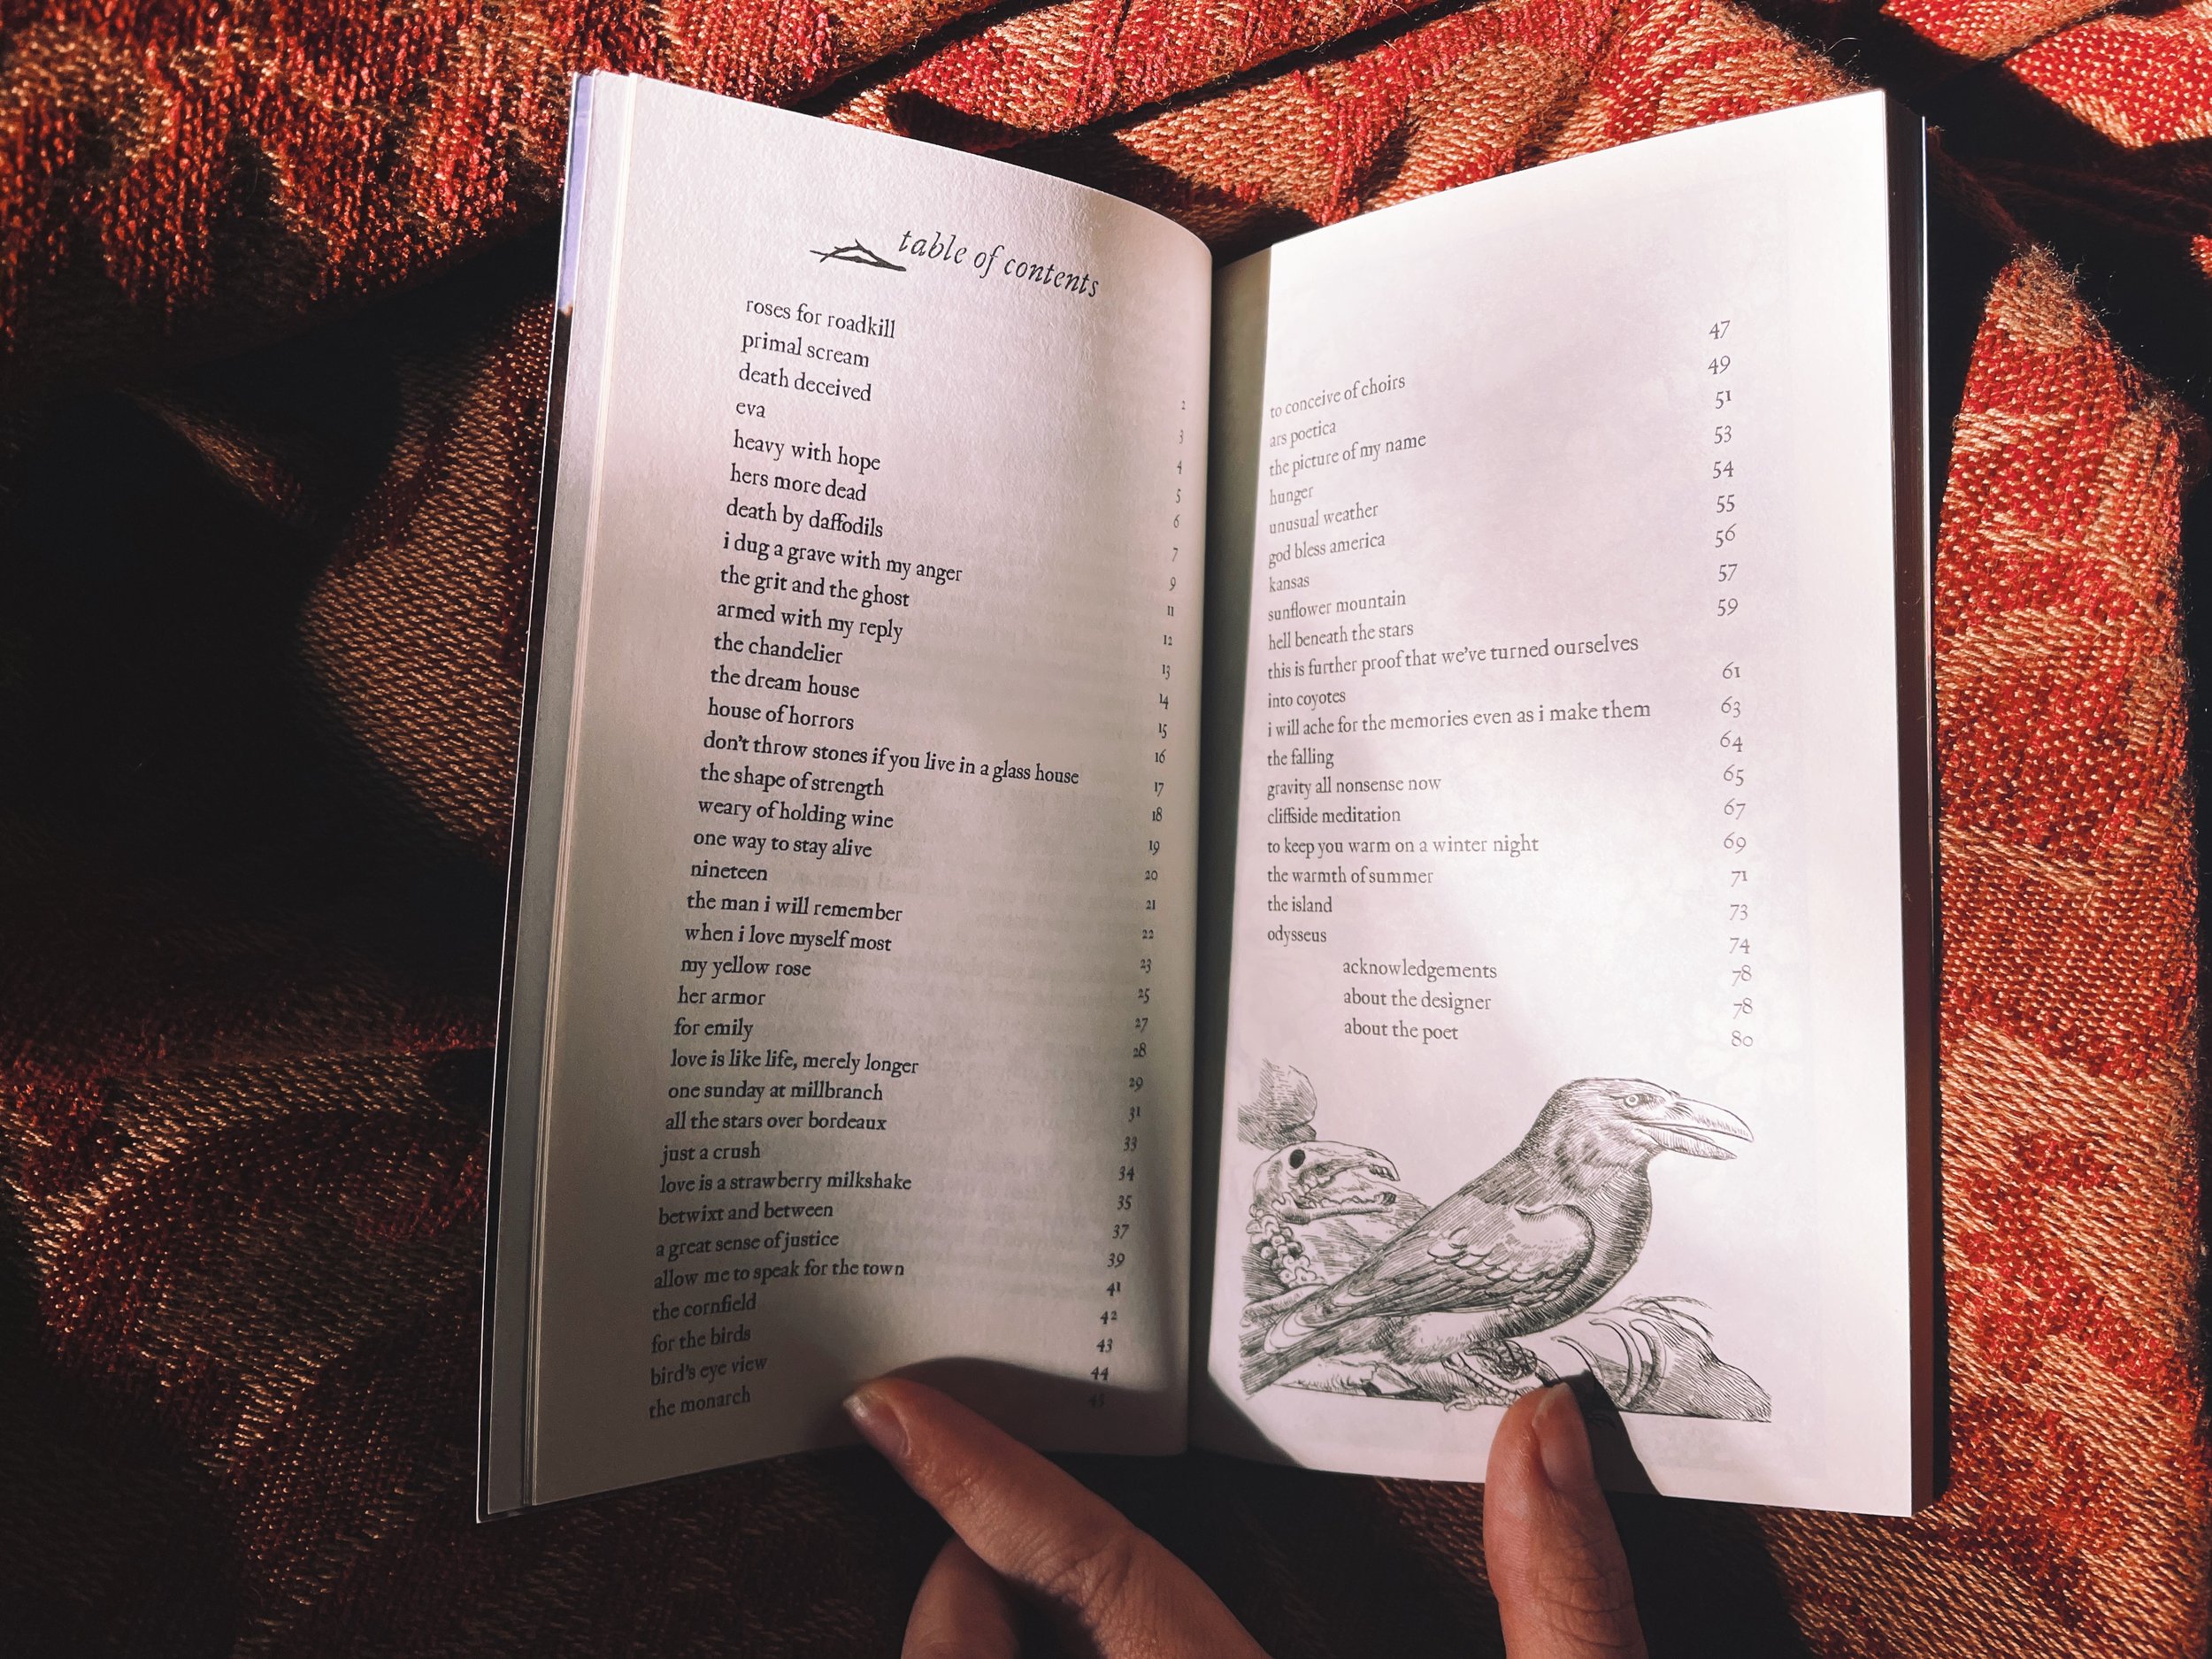 table of contents
roses for roadkill 2
primal scream 3
death deceived 4
eva 5
heavy with hope 6
hers more dead 7
death by daffodils 9
i dug a grave with my anger 11
the grit and the ghost 12
armed with my reply 13
the chandelier 14
the dream house 15
house of horrors 16
don't throw stones if you live in a glass house 17
the shape of strength 18
weary of holding wine 19
one way to stay alive 20
nineteen 21
the man i will remember 22
when i love myself most 23
my yellow rose 25
her armor 27
for emily 28
love is like life, merely longer 29
one sunday at millbranch 31
all the stars over bordeaux 33
just a crush 34
love is a strawberry milkshake 35
betwixt and between 37
a great sense of justice 39
allow me to speak for the town 41
the cornfield 42
for the birds 43
bird's eye view 44
the monarch 45
to conceive of choirs 47
ars poetica 49
the picture of my name 51
hunger 53
unusual weather 54
god bless america 55
kansas 56
sunflower mountain 57
hell beneath the stars 59
this is further proof that we've turned ourselves
into coyotes 61
i will ache for the memories even as i make them 63
the falling 64
gravity all nonsense now 65
cliffside meditation 67
to keep you warm on a winter night 69
the warmth of summer 71
the island 73
odysseus 74
acknowledgements 78
about the designer 78
about the poet 80